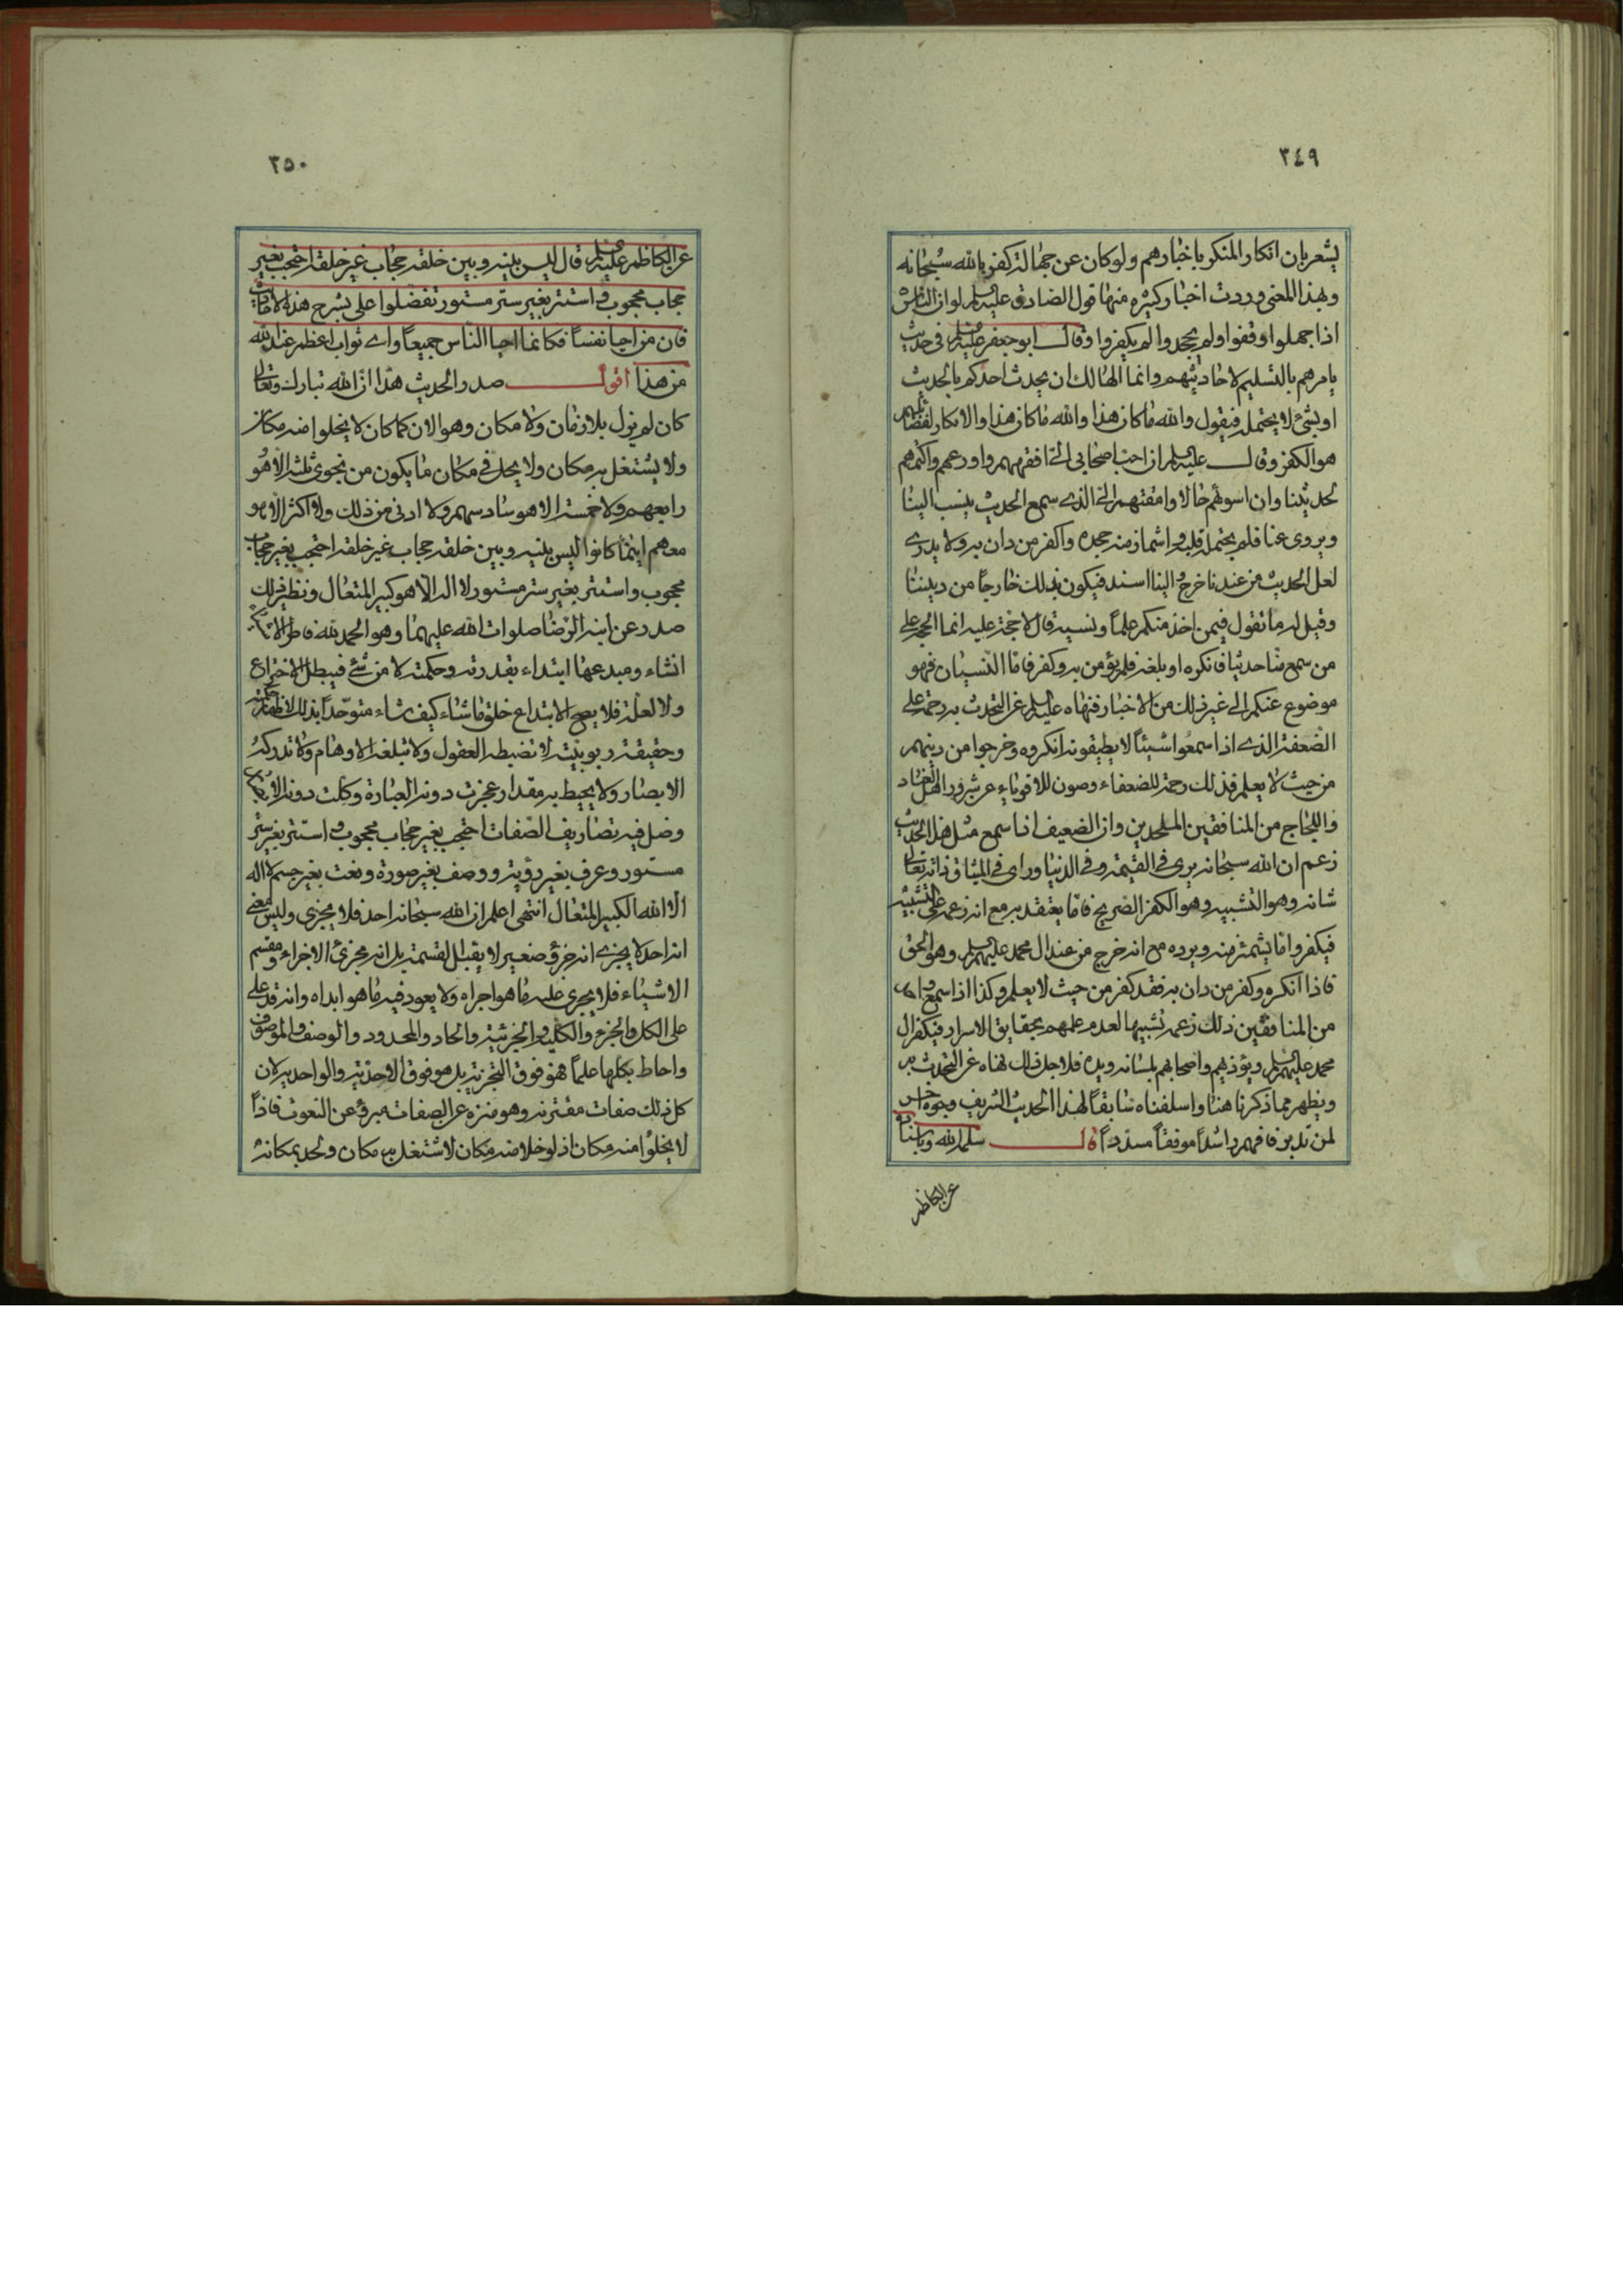 ٣٤٩
يشعر بان انكار المنكر باخبارهم ولو كان عن جهالة كفر بالله سبحانه
وبهذا المعنى وردت اخبار كثيرة منها قول الصادق عليه السلم لو ان الناس
اذا جهلوا وقفوا ولم يجحدوا لم يكفروا وقال ابو جعفر عليه السلم فى حديث
يامرهم بالتسليم لاحاديثهم وانما الهالك ان يحدث احدكم بالحديث
او بشئ لا يحتمله فيقول والله ماكان هذا والله ماكان هذا والانكار لفضائلهم
هو الكفر وقال عليه السلم ان احب اصحابى الى افقههم واورعهم واكتمهم
لحديثنا وان اسوئهم حالا وامقتهم الى الذى سمع الحديث ينسب الينا
ويروى عنا فلم يحتمله قلبه واشمأز منه جحده واكفر من دان به ولا يدرى
لعل الحديث من عندنا خرج والينا اسند فيكون بذلك خارجاً من ديننا
وقيل له ما تقول فيمن اخذ منكم علماً ونسيه قال لا حجة عليه انما الحجة على
من سمع منا حديثا فانكره او بلغه فلم يؤمن به وكفر فاما النسيان فهو
موضوع عنكم الى غير ذلك من الاخبار فنهاه عليه السلم عن التحدث به رحمة على
الضعفة الذى اذا سمعوا شيئاً لا يطيقونه انكروه وخرجوا من دينهم
من حيث لا يعلم فذلك رحمة للضعفاء وصون للاقوياء عن شرور اهل العناد
واللجاج من المنافقين الملحدين وان الضعيف اذا سمع مثل هذا الحديث
زعم ان الله سبحانه يرى فى القيمة وفى الدنيا وراى فى الميثاق ذاته تعالى
شانه وهو التشبيه وهو الكفر الصريح فاما يعتقد به مع انه زعمه على التشبيه
فيكفر واما يشمئز منه ويرده مع انه خرج من عند ال محمد عليهم السلم وهو الحق
فاذا انكره وكفر من دان به فقد كفر من حيث لا يعلم وكذا اذا سمع
من المنافقين ذلك زعمه تشبيها لعدم علمهم بحقايق الاسرار فيكفر ال
محمد عليهم السلم ويؤذيهم واصحابهم بلسانه ويده فلاجل ذلك نهاه عن التحدث به
ويظهر مما ذكرنا هنا واسلفناه سابقاً لهذا الحديث الشريف وجوه
لمن تدبر فافهم راشداً موفقاً مسدداً قال سلمه الله
عن الكاظم
٣٥٠
عن الكاظم عليه السلم قال ليس بينه وبين خلقه حجاب غير خلقه احتجب بغير
حجاب محجوب واستتر بغير ستر مستور تفضلوا على بشرح هذه الاحاديث
فان من احيا نفساً فكانما احيا الناس جميعاً واى ثواب اعظم عند الله
من هذا اقول صدر الحديث هذا ان الله تبارك وتعالى
كان لم يزل بلا زمان ولا مكان وهو الان كما كان لا يخلوا منه مكان
ولا يشتغل به مكان ولا يحل فى مكان ما يكون من نجوى ثلثة الا هو
رابعهم ولا خمسة الا هو سادسهم ولا ادنى من ذلك ولا اكثر الا هو
معهم اينما كانوا ليس بينه وبين خلقه حجاب غير خلقه احتجب بغير حجاب
محجوب واستتر بغير ستر مستور لا اله الا هو كبير المتعال ونظير ذلك
صدر عن ابنه الرضا صلوات الله عليهما وهو الحمد لله فاطر الاشياء
انشاء ومبدعها ابتداء بقدرته وحكمته لا من شئ فيبطل الاختراع
ولا لعلة فلا يصح الابتداع خلق ما شاء كيف شاء متوحداً بذلك لاظهار حكمته
وحقيقة ربوبيته لا تضبطه العقول ولا تبلغه الاوهام ولا تدركه
الابصار ولا يحيط به مقدار عجزت دونه العبارة وكلت دونه الابصار
وضل فيه تصاريف الصفات احتجب بغير حجاب محجوب واستتر بغير ستر
مستور وعرف بغير رؤية ووصف بغير صورة ونعت بغير جسم لا اله
الا الله الكبير المتعال انتهى اعلم ان الله سبحانه احد فلا يجزى وليس معنى
انه احد لا يجزى انه جزؤ صغير لا يقبل القسمة بل انه مجزئ الاجزاء ومقسم
الاشياء فلا يجرى عليه ما هو اجراه ولا يعود فيه ما هو ابداه وانه قد على
على الكل والجزء والكلية والجزئية والحاد والمحدود والوصف والموصوف
واحاط بكلها علماً فهو فوق التجزية بل هو فوق الاحدية والواحدية لان
كل ذلك صفات مقترنه وهو منزه عن الصفات مبرؤ عن النعوت فاذاً
لا يخلوا منه مكان اذ لو خلا منه مكان لاشتغل به مكان ولحد بمكانه